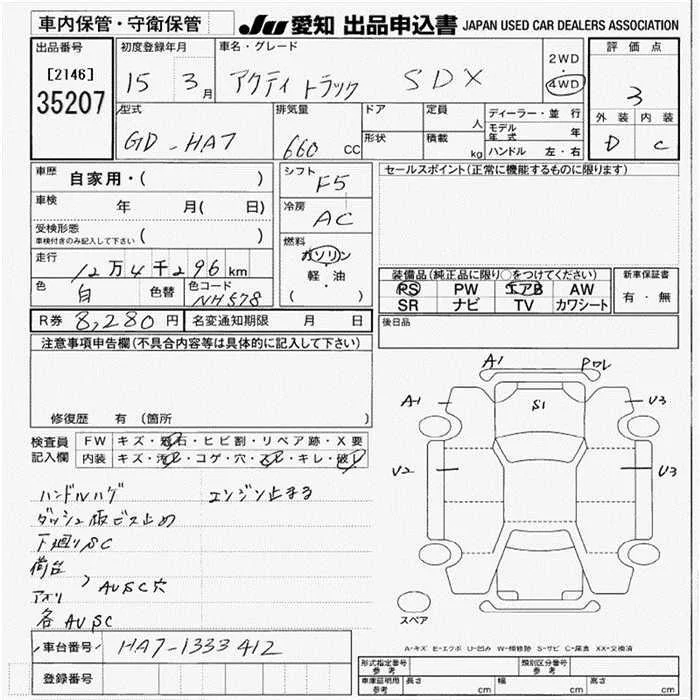 車内保管・守衛保管 JU 愛知 出品申込書 JAPAN USED CAR DEALERS ASSOCIATION
出品番号 初度登録年月 車名・グレード 評価点
[2146] 15 3月 アクティ トラック SDX 2WD・4WD 3
35207 型式 排気量 ドア 定員 ディーラー・並行 外装 内装
GD-HA7 660cc 形状 人 積載 kg モデル年式 年 ハンドル 左・右 D C
車歴 自家用・( ) シフト F5 セールスポイント(正常に機能するものに限ります)
車検 年 月( 日) 冷房 AC
受検形態 車検付きのみ記入して下さい ( )
走行 12万4千296km 燃料 ガソリン・軽・油 ( ) 装備品(純正品に限り○をつけてください) 新車保証書
色 白 色替 色コード NH578 PS PW エアB AW 有・無
SR ナビ TV カワシート
R券 8,280円 名変通知期限 月 日 後日品
注意事項申告欄(不具合内容等は具体的に記入して下さい)
修復歴 有 (箇所 )
検査員記入欄 FW キズ・飛石・ヒビ割・リペア跡・X要
内装 キズ・汚レ・コゲ・穴・スレ・キレ・破レ
A1 Pワレ
A-1 S1 U3
U2 U3
ハンドルハゲ エンジン止まる
ダッシュ板ビス止め
下廻りSC
荷台
アオリ AUSC穴
各AUSC
スペア
A-キズ E-エクボ U-凹み W-補修跡 S-サビ C-腐食 XX-交換済
車台番号 HA7-1333412
登録番号
形式指定番号 参考 類別区分番号 参考
車庫証明用 参考 長さ cm 幅 cm 高さ cm